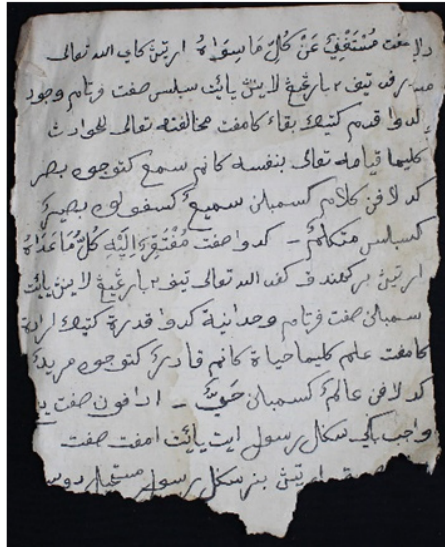 دان صفت مستغني عن كل ما سواه ارتيڽ كاي الله تعالى
درفد تيف٢ بارڠ يڠ لاينڽ يائيت سبلس صفت فرتام وجود
كدوا قدم كتيݢ بقاء كامفت مخالفته تعالى للحوادث
كليما قيامه تعالى بنفسه كانم سمع كتوجوه بصر
كدلافن كلام كسمبيلن سميع كسفوله بصير
كسبلس متكلم – كدوا صفت مُفْتَقِرٌ اِلَيْهِ كُلُّ مَا عَدَاهُ
ارتيڽ بركهندق كفد الله تعالى تيف٢ بارڠ يڠ لاينڽ يائيت
سمبيلن صفت فرتام وحدانية كدوا قدرة كتيݢ ارادة
كامفت علم كليما حياة كانم قادر كتوجوه مريد
كدلافن عالم كسمبيلن حي – ادافون صفت يڠ
واجب باݢي سكال رسول ايت يائيت امفت صفت
ارتيڽ بنر سكل رسول مستحيل دوست